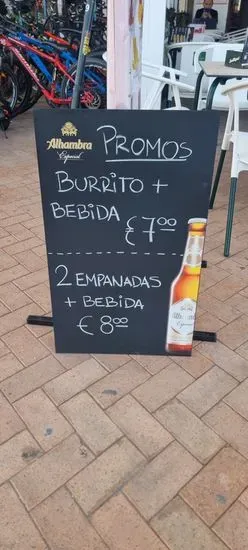 Alhambra
Especial
PROMOS
BURRITO +
BEBIDA
€ 7.00
2 EMPANADAS
+ BEBIDA
€ 8.00
Alhambra
Especial